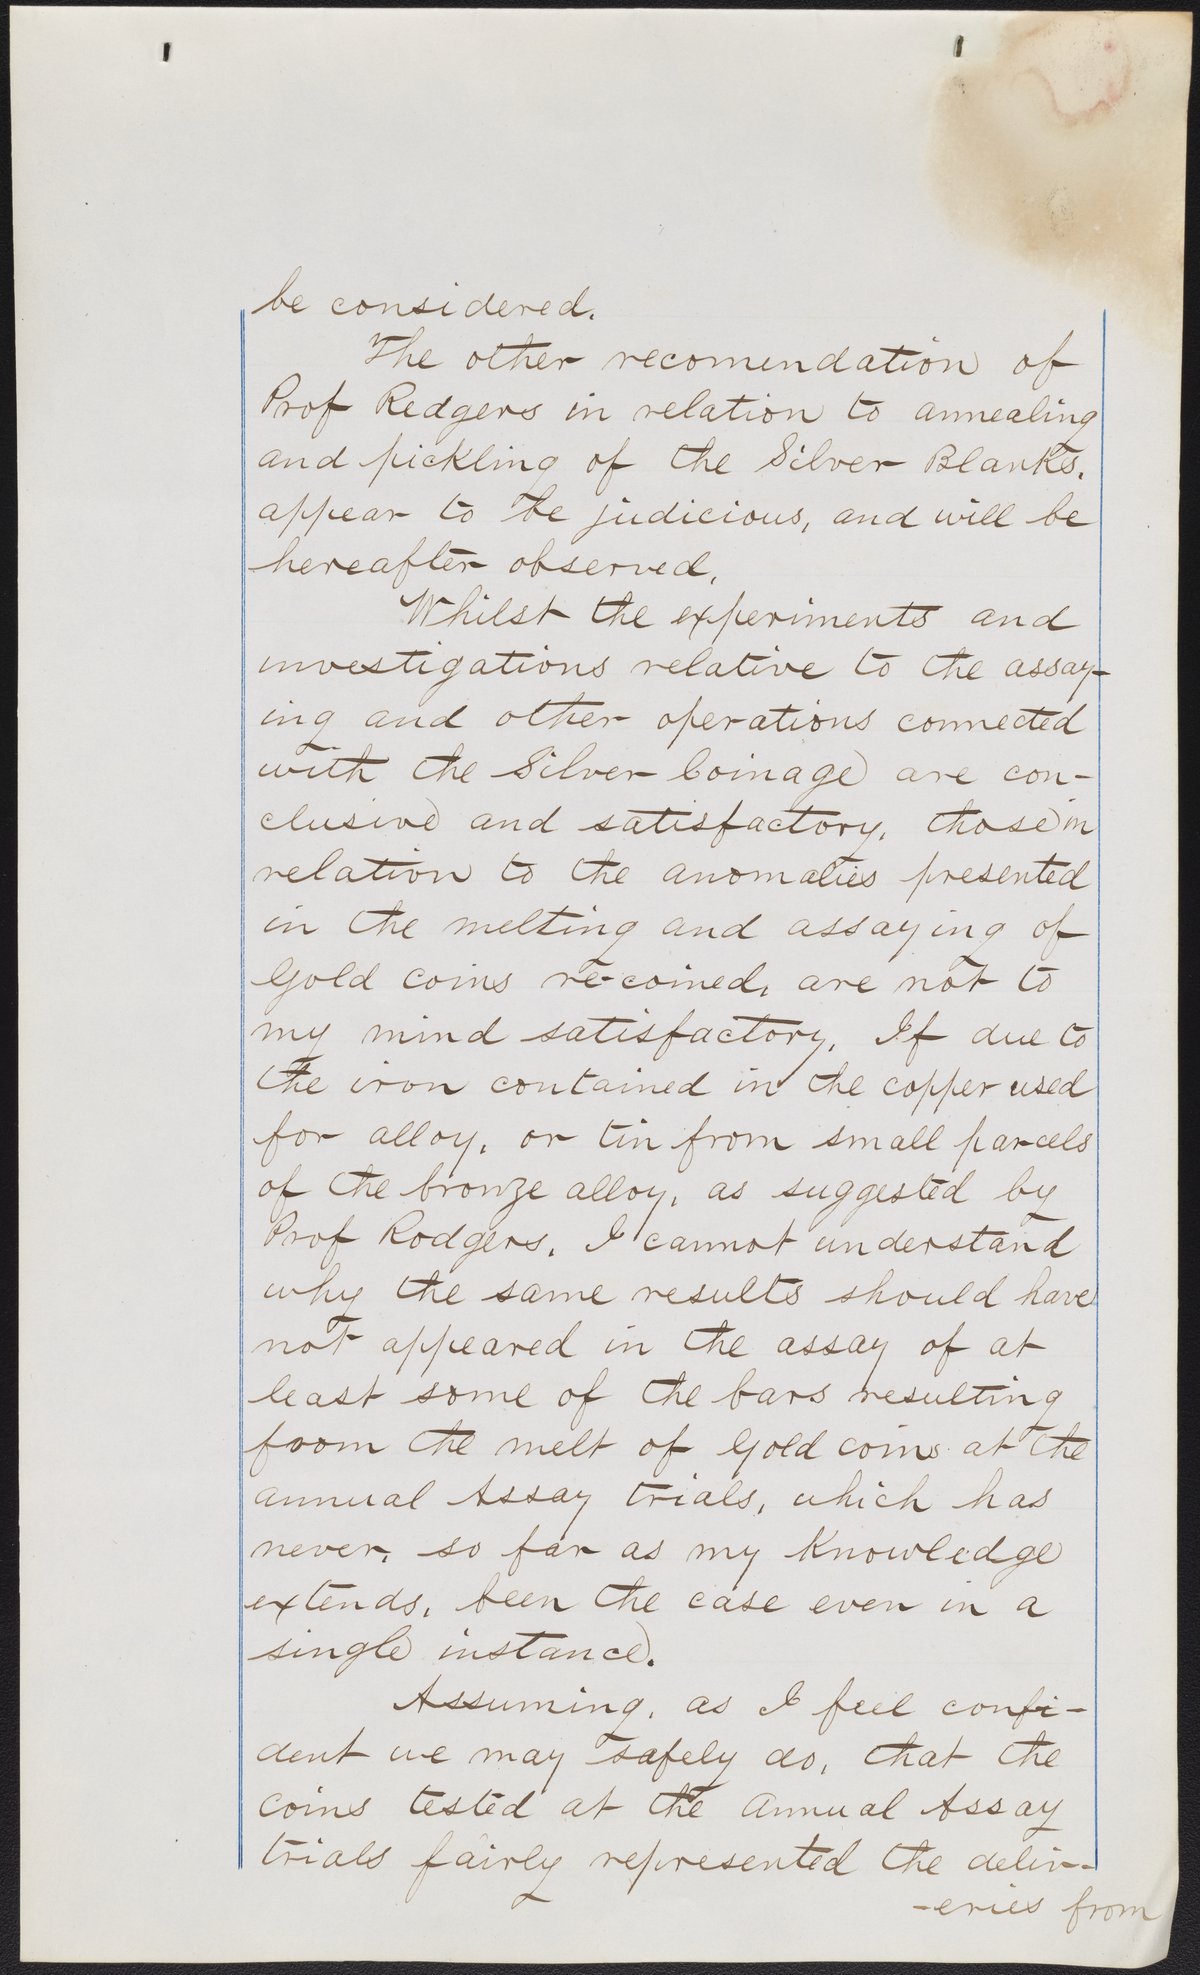 be considered.
The other recomendation of
Prof Redgers in relation to annealing
and pickling of the Silver Blanks.
appear to be judicious, and will be
hereafter observed.
Whilst the experiments and
investigations relative to the assay-
ing and other operations connected
with the Silver Coinage are con-
clusive and satisfactory, those in
relation to the anomalies presented
in the melting and assaying of
Gold coins re-coined, are not to
my mind satisfactory. If due to
the iron contained in the copper used
for alloy, or tin from small parcels
of the bronze alloy, as suggested by
Prof Rodgers, I cannot understand
why the same results should have
not appeared in the assay of at
least some of the bars resulting
from the melt of Gold coins at the
annual Assay trials, which has
never, so far as my Knowledge
extends, been the case even in a
single instance.
Assuming, as I feel confi-
dent we may safely do, that the
coins tested at the Annual Assay
trials fairly represented the deliv-
-eries from